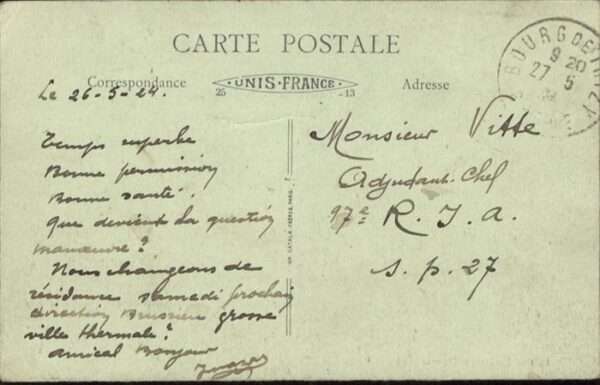 CARTE POSTALE
Correspondance
UNIS-FRANCE
Adresse
25
13
BOURG DE
9 20
27 5
Le 26-5-24.
Temps superbe
Bonne permission
Bonne santé.
Que devient la question
manœuvre ?
Nous changeons de
résidance samedi prochain
direction grosse
ville thermale ?
amical Bonjour
Monsieur Vitte
Adjudant-Chef
97e R. I. A.
S. p. 27